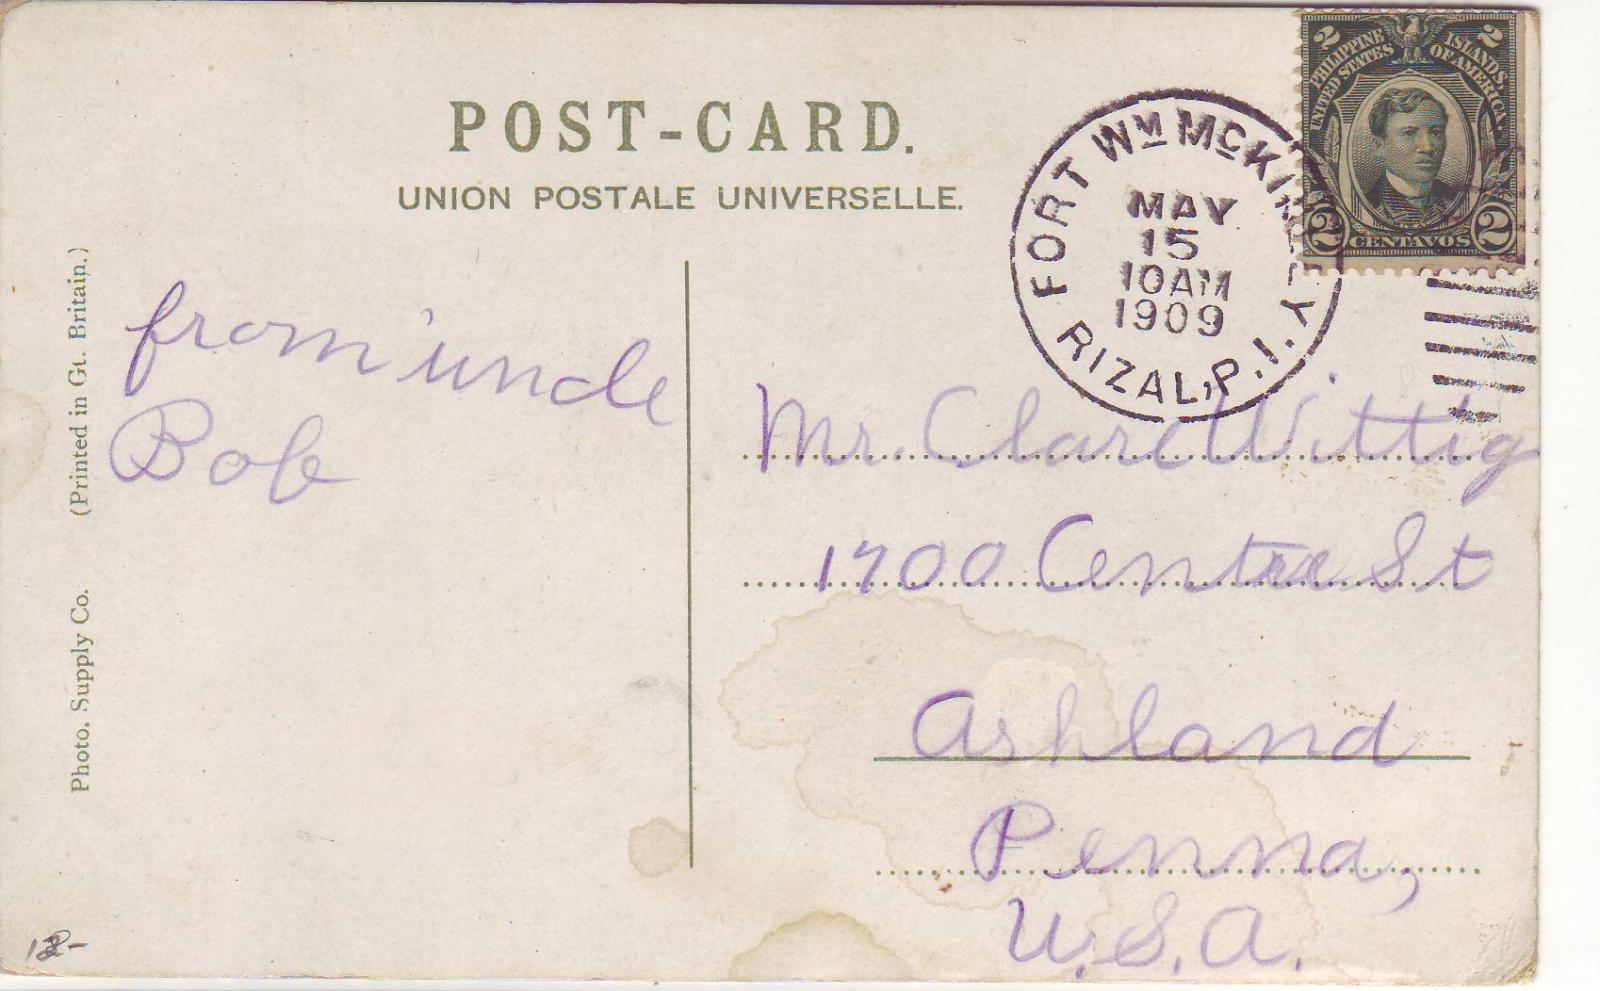 POST-CARD.
UNION POSTALE UNIVERSELLE.
2 PHILIPPINE ISLANDS 2
UNITED STATES OF AMERICA
2 CENTAVOS 2
FORT WM MCKINLEY
MAY
15
10AM
1909
RIZAL, P.I.
from uncle
Bob
Mr. Clare Wittig
1700 Centre St
Ashland
Penna,
U.S.A.
Photo. Supply Co. (Printed in Gt. Britain.)